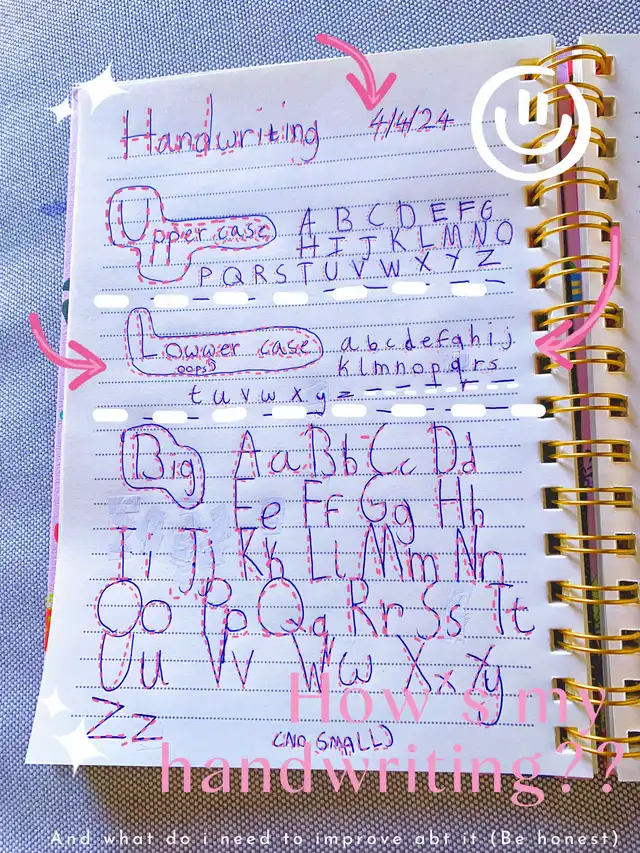 Handwriting 4/4/24
Upper case A B C D E F G
H I J K L M N O
P Q R S T U V W X Y Z
Lowwer case a b c d e f g h i j
oops k l m n o p q r s
t u v w x y z
Big Aa Bb Cc Dd
Ee Ff Gg Hh
Ii Jj Kk Ll Mm Nn
Oo Pp Qq Rr Ss Tt
Uu Vv Ww Xx Yy
Zz (NO SMALL)
How's my
handwriting??
And what do i need to improve abt it (Be honest)